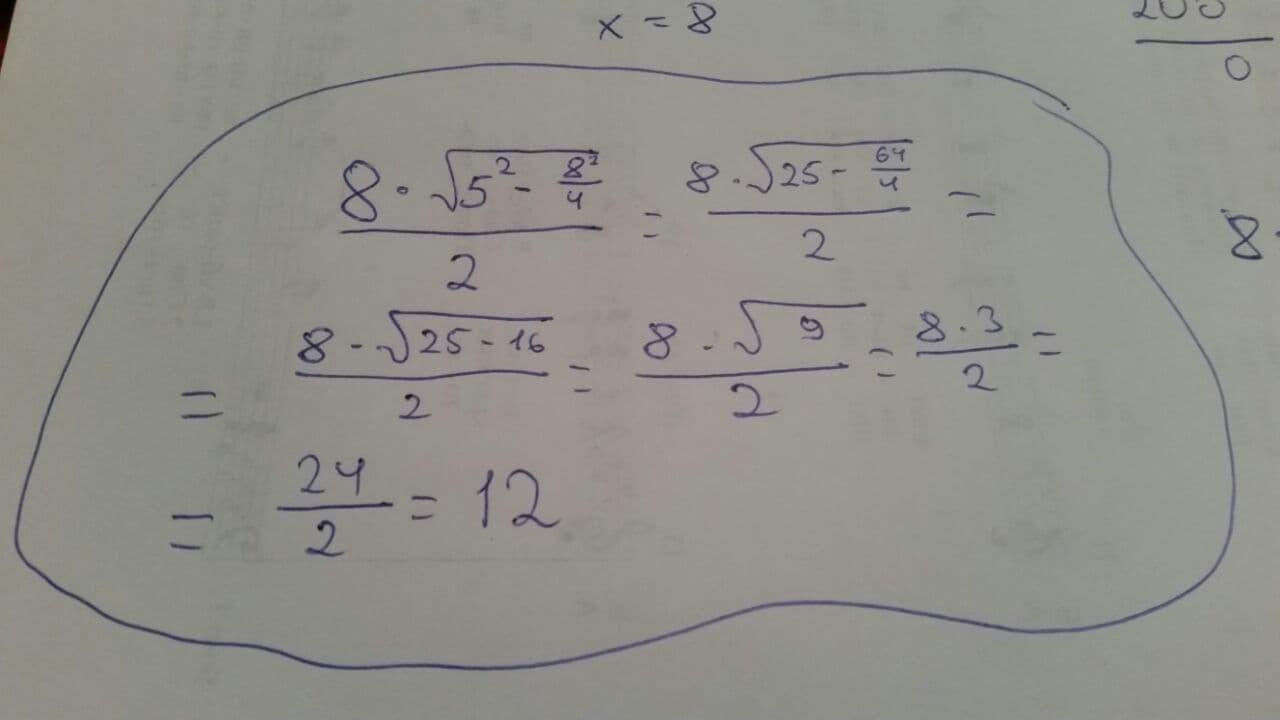 x = 8
0
8 · √(5² - 8²/4) / 2 = 8 · √(25 - 64/4) / 2 =
8
= 8 · √(25 - 16) / 2 = 8 · √9 / 2 = 8 · 3 / 2 =
= 24 / 2 = 12